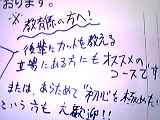 おります。
※教育係の方へ!
後輩にカットを教える
立場にある方にもオススメの
コースです
または、あらためて"初心"を極めたい
という方も大歓迎!!